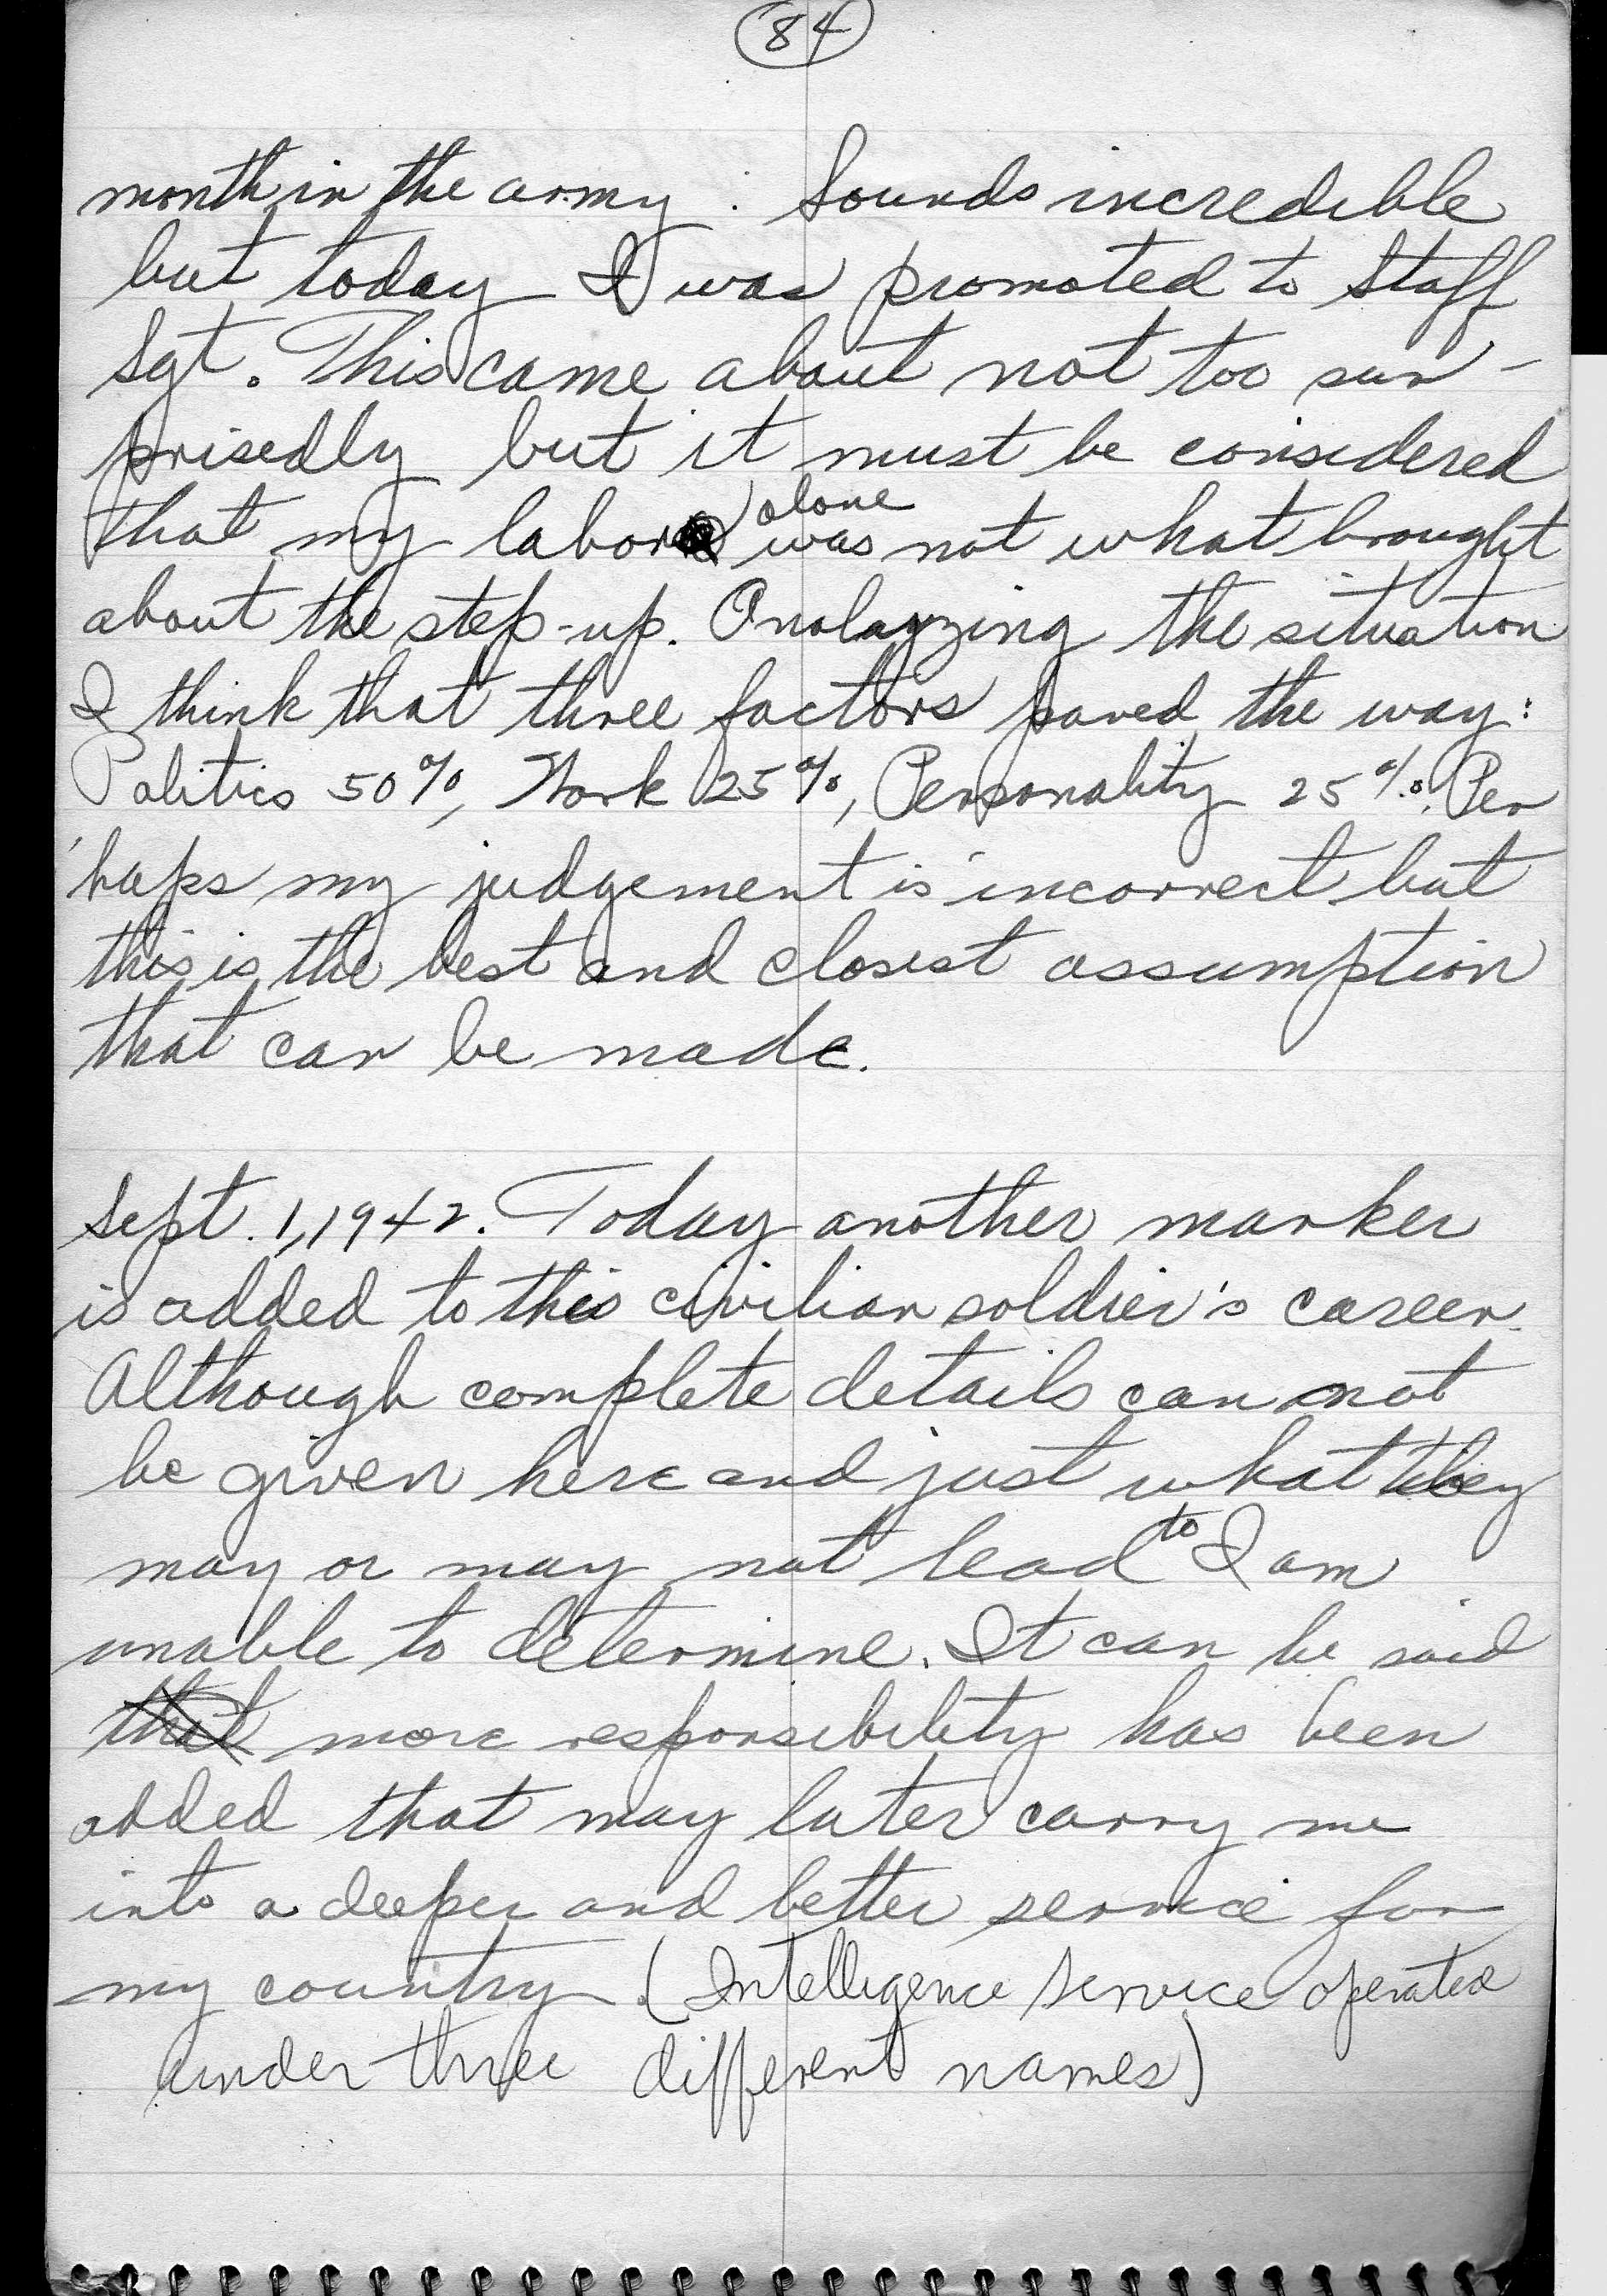 84
month in the army. Sounds incredible
but today I was promoted to Staff
Sgt. This came about not too sur-
prisedly but it must be considered
that my labor alone was not what brought
about the step-up. Analayzing the situation
I think that three factors paved the way:
Politics 50%, Work 25%, Personality 25%. Per
haps my judgement is incorrect but
this is the best and closest assumption
that can be made.
Sept. 1, 1942. Today another marker
is added to this civilian soldier's career.
Although complete details can not
be given here and just what they
may or may not lead to I am
unable to determine. It can be said
that more responsibility has been
added that may later carry me
into a deeper and better service for
my country. (Intelligence Service operated
under three different names)